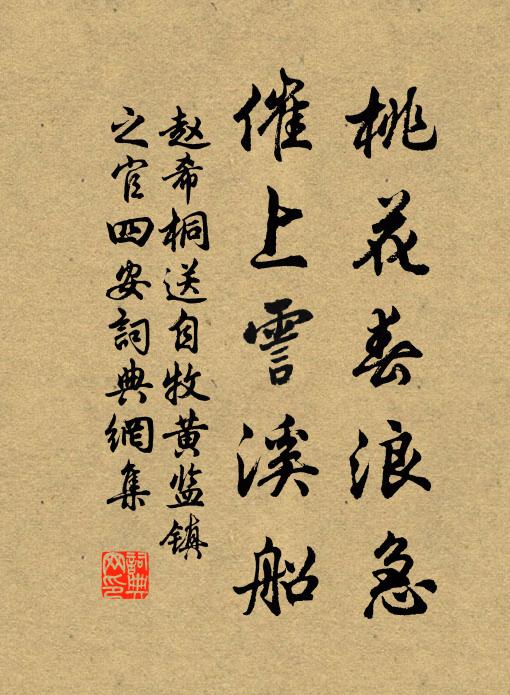 桃花春浪急
催上霅溪船
赵希桐送自牧黄监镇
之官四安詞典網集
詞典
网印